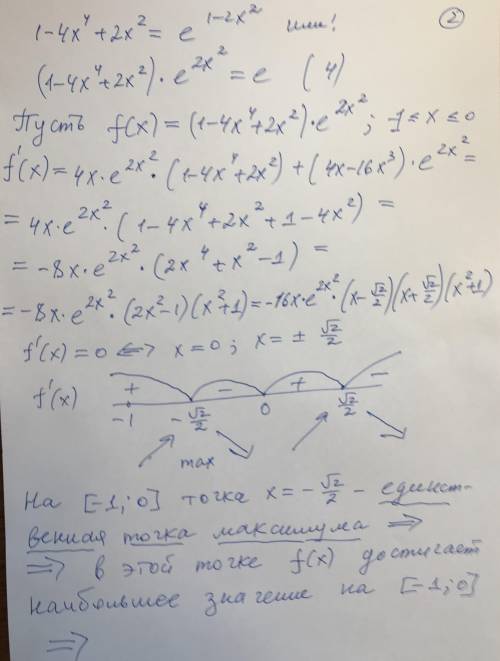 ②
1-4x⁴+2x² = e^(1-2x²) или!
(1-4x⁴+2x²)·e^(2x²) = e (4)
Пусть f(x) = (1-4x⁴+2x²)·e^(2x²); -1≤x≤0
f'(x) = 4x·e^(2x²)·(1-4x⁴+2x²)+(4x-16x³)·e^(2x²) =
= 4x·e^(2x²)·(1-4x⁴+2x²+1-4x²) =
= -8x·e^(2x²)·(2x⁴+x²-1) =
= -8x·e^(2x²)·(2x²-1)(x²+1) = -16x·e^(2x²)·(x-√2/2)(x+√2/2)(x²+1)
f'(x)=0 ⟺ x=0; x=± √2/2
f'(x) + - + -
-1 -√2/2 0 √2/2
max
На [-1;0] точка x=-√2/2 - единст-
венная точка максимума ⇒
⇒ в этой точке f(x) достигает
наибольшее значение на [-1;0]
⇒